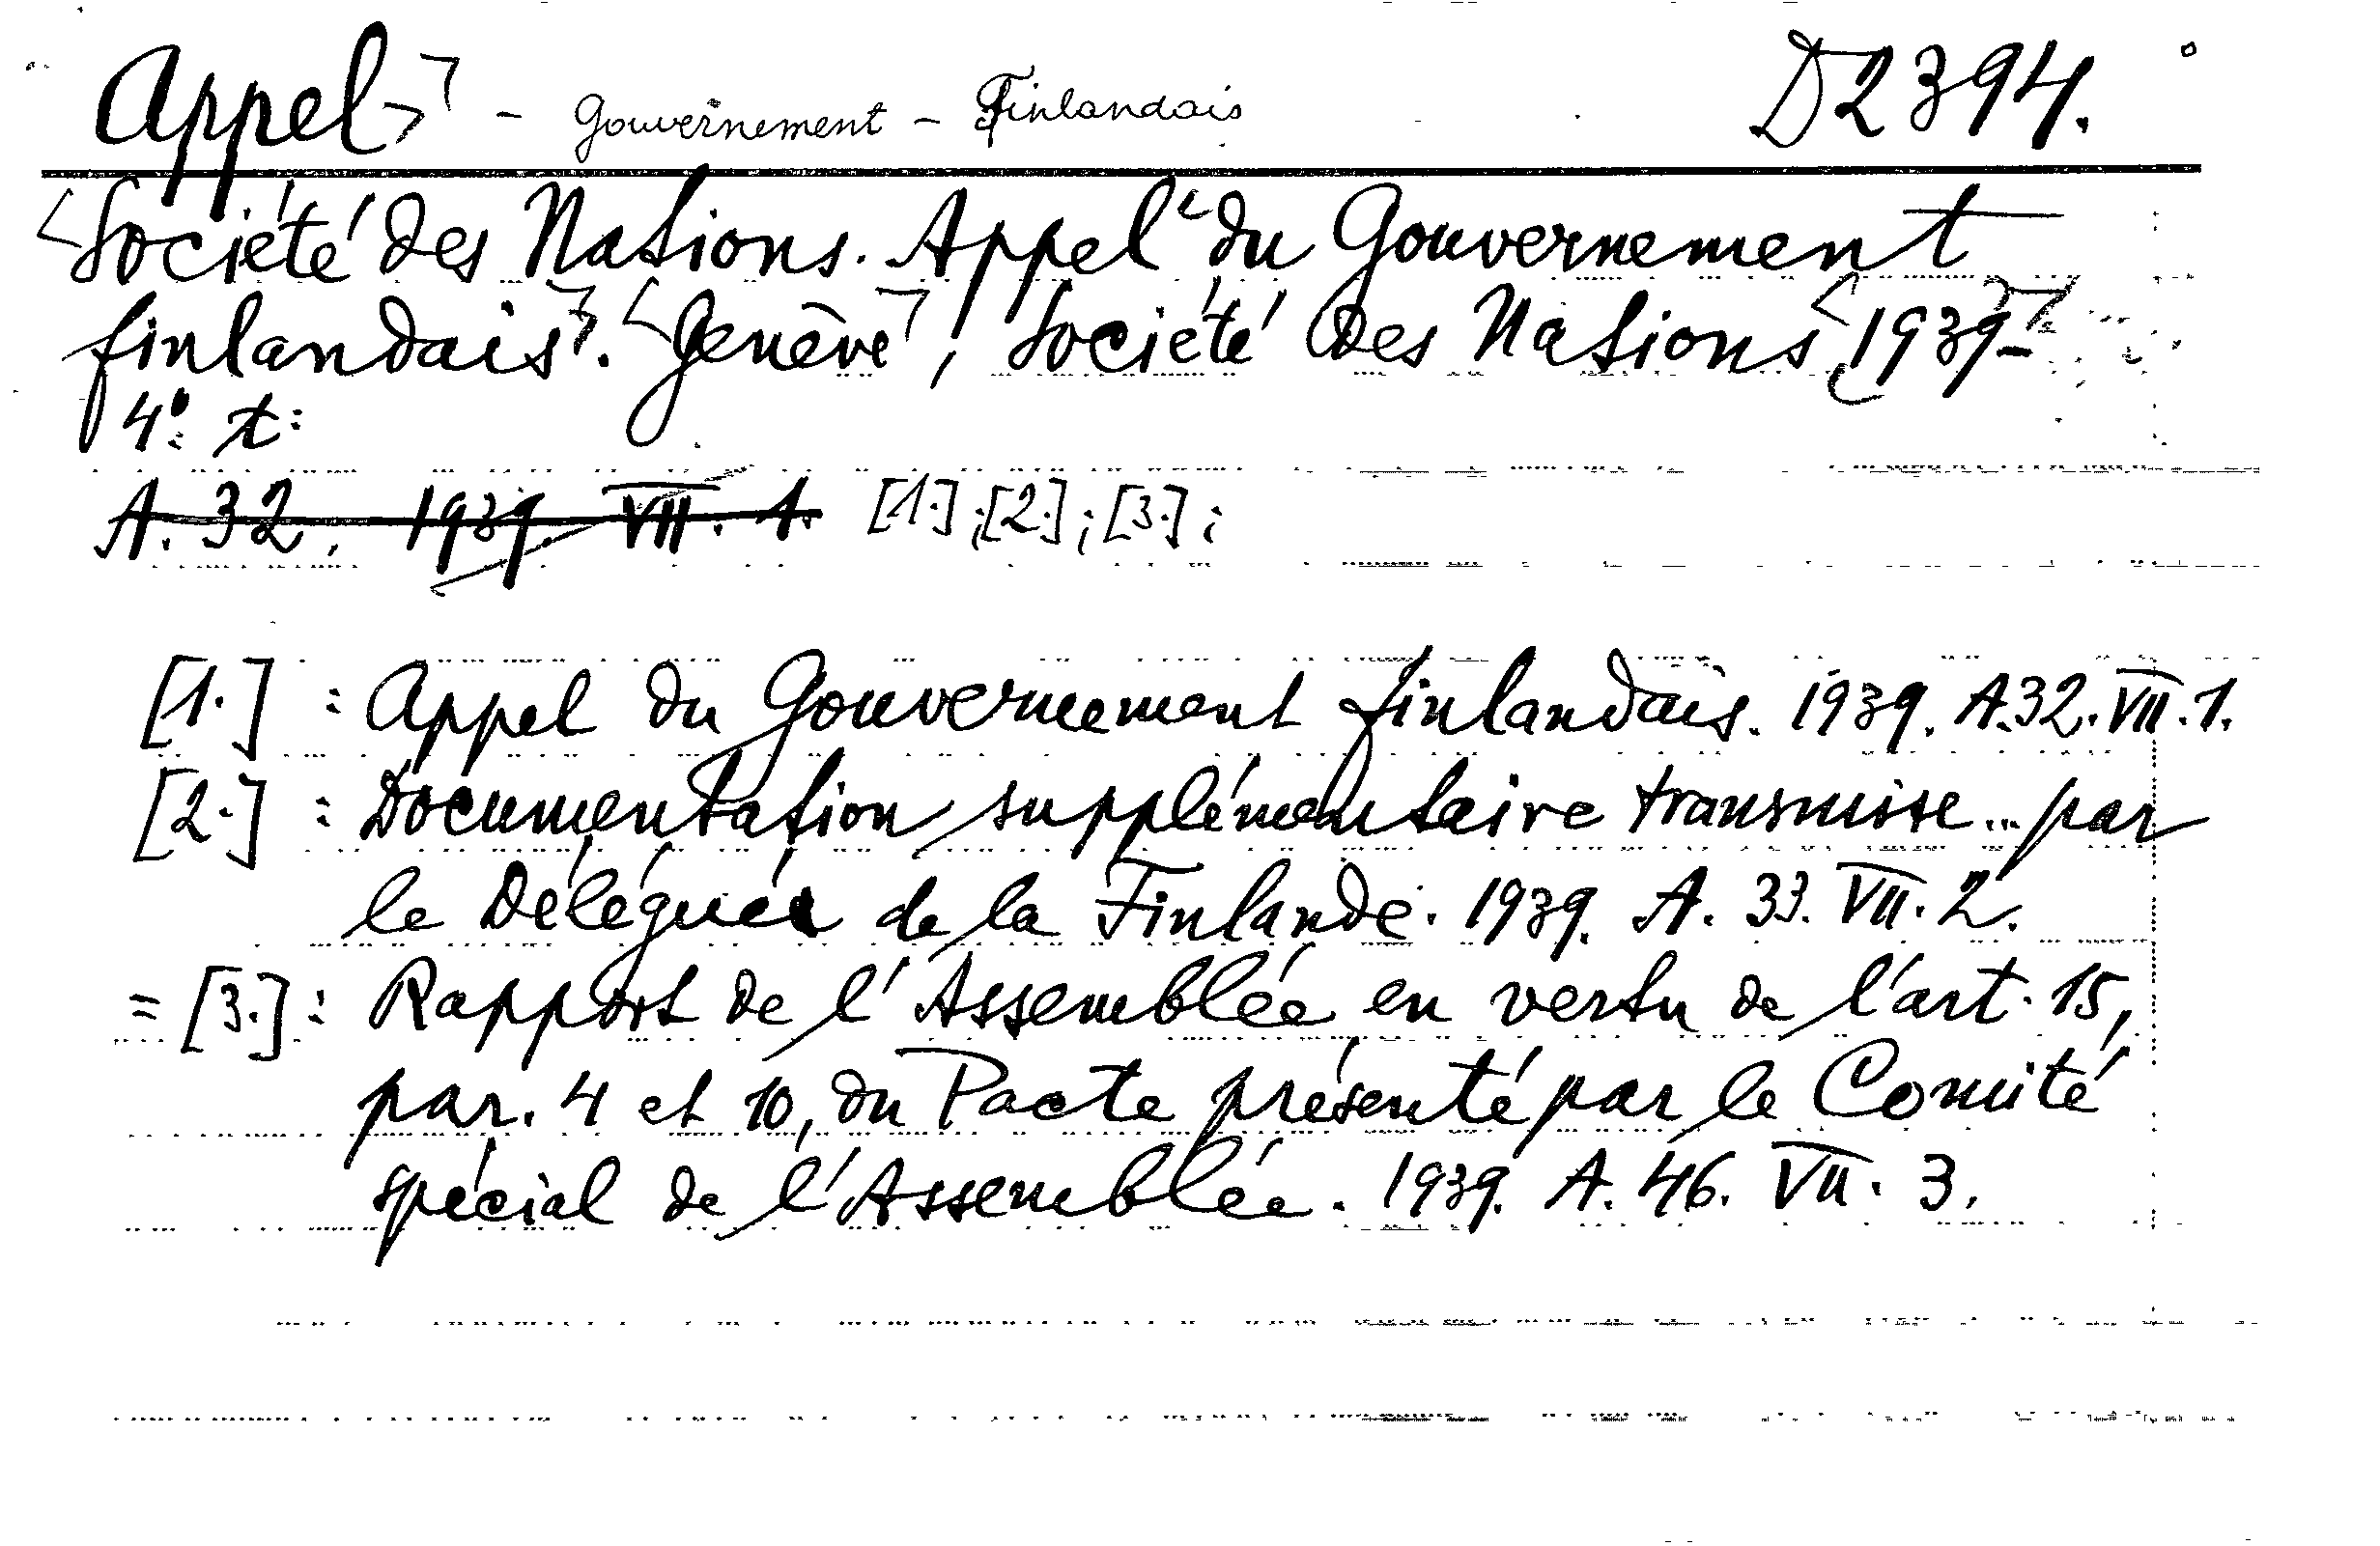 Appel - Gouvernement - Finlandais D2394.
Société des Nations. Appel du Gouvernement
finlandais. Genève, Société des Nations 1939-
4° t:
A. 32. 1939. VII. 1. [1.]; [2.]; [3.];
[1.] : Appel du Gouvernement finlandais. 1939. A.32.VII.1.
[2.] : Documentation supplémentaire transmise... par
le Délégués de la Finlande. 1939. A. 33. VII. 2.
= [3.] : Rapport de l'Assemblée en vertu de l'art. 15,
par. 4 et 10, du Pacte présenté par le Comité
spécial de l'Assemblée. 1939. A. 46. VII. 3.